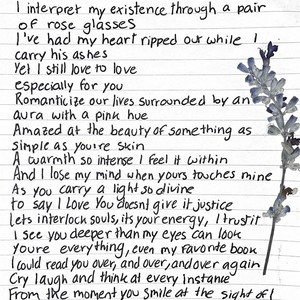 I interpret my existence through a pair
of rose glasses
I've had my heart ripped out while I
carry his ashes
Yet I still love to love
especially for you
Romanticize our lives surrounded by an
aura with a pink hue
Amazed at the beauty of something as
simple as you're skin
A warmth so intense I feel it within
And I lose my mind when yours touches mine
As you carry a light so divine
to say I Love You doesnt give it justice
lets interlock souls, its your energy, I trust it
I see you deeper than my eyes can look
Youre everything, even my favorite book
I could read you over, and over, and over again
Cry laugh and think at every instance
From the moment you smile at the sight of I